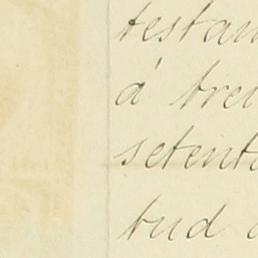 testam
á trei
setenta
tud d